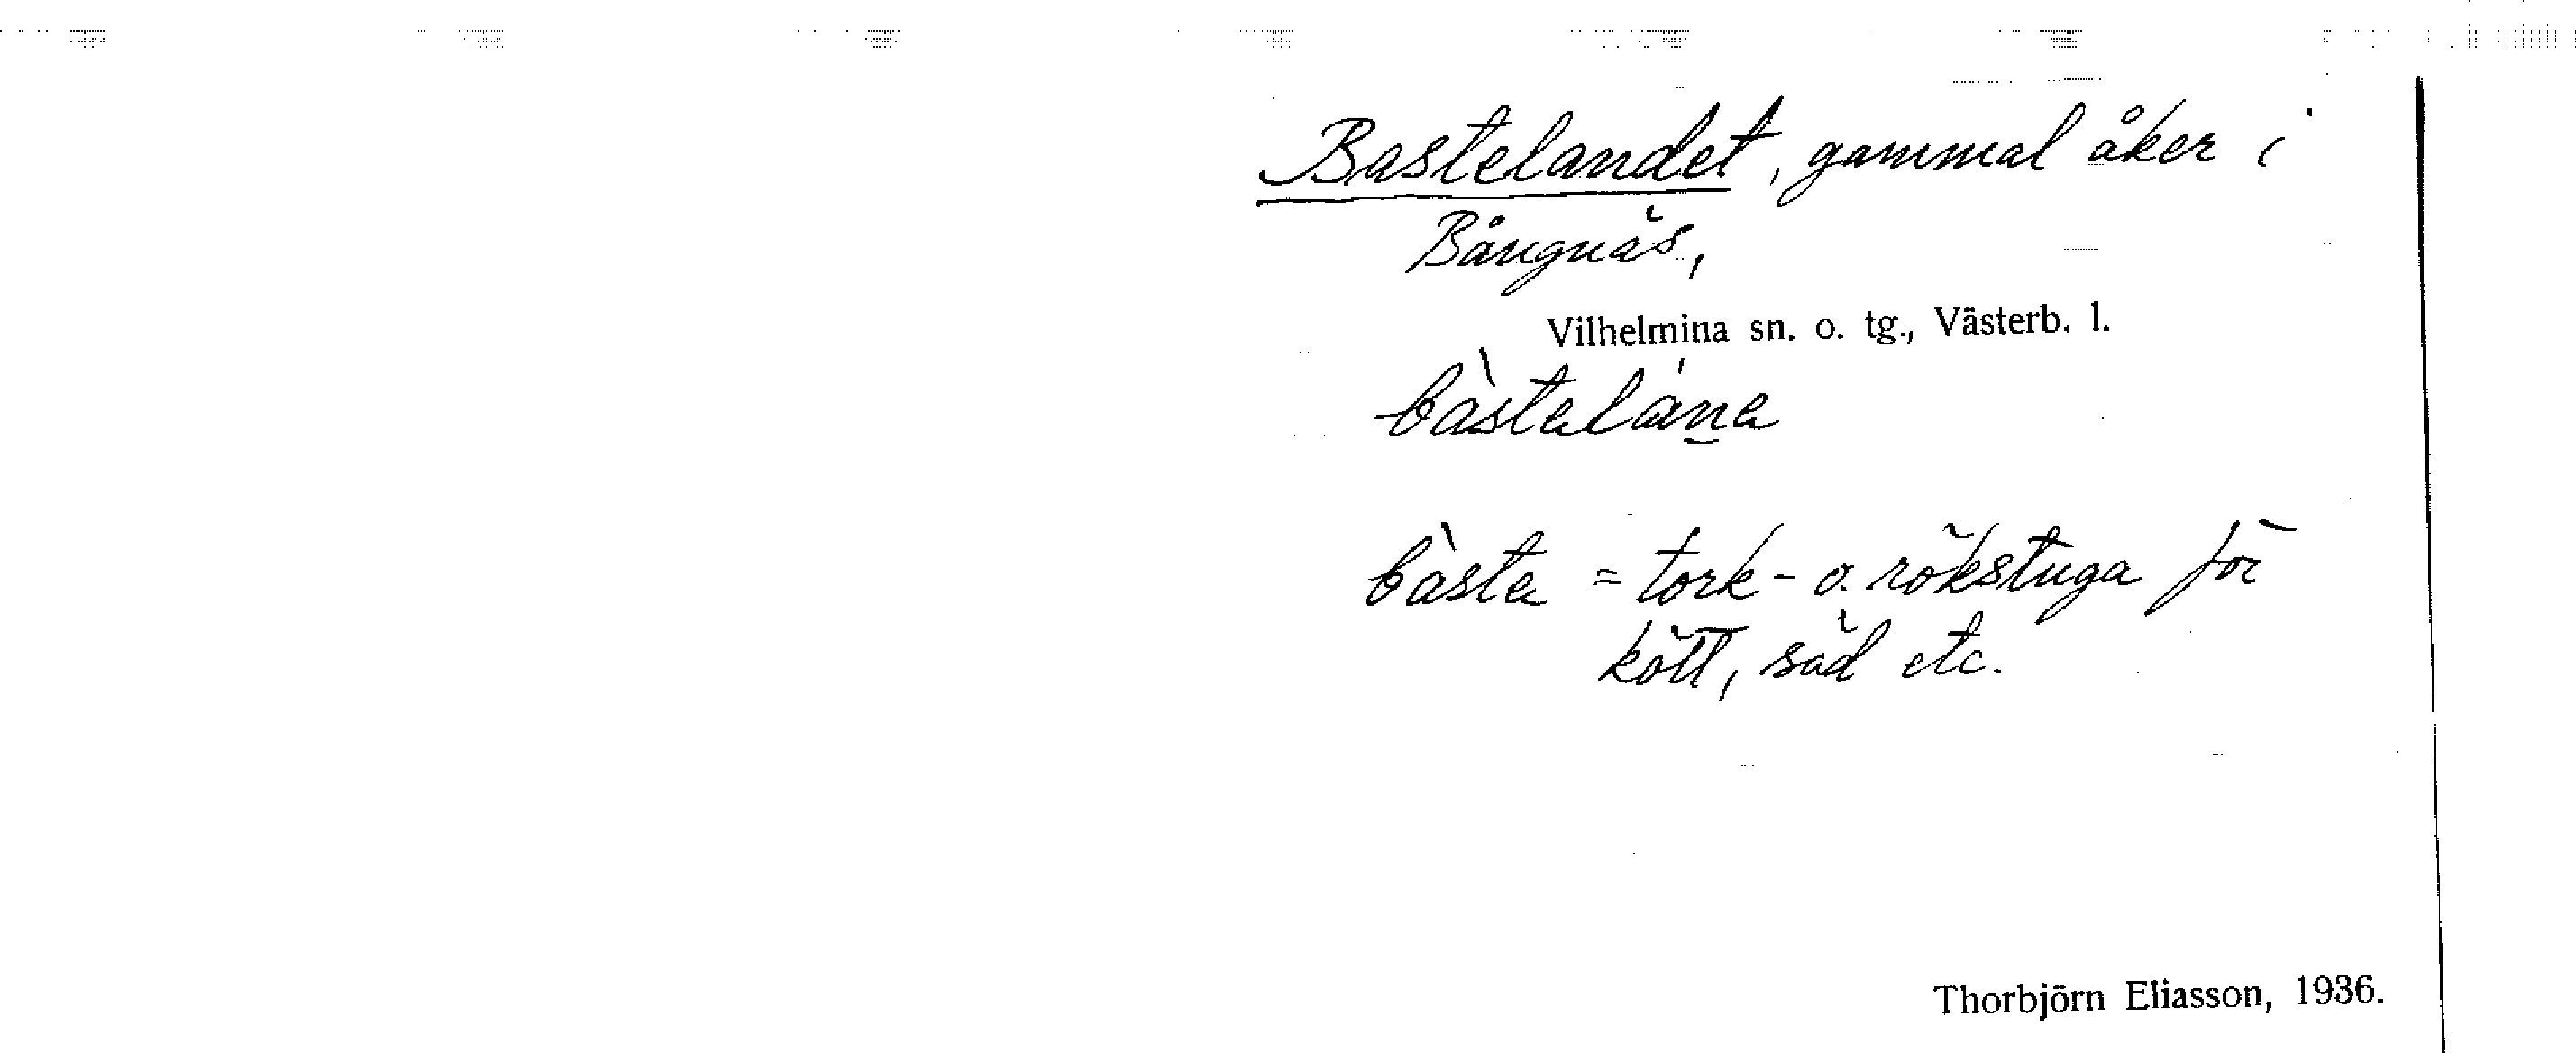 Bastelandet, gammal åker i
Bångnäs,
Vilhelmina sn. o. tg., Västerb. l.
bàstaláṉa
bàsta = tork- o. rökstuga för
kött, säd etc.
Thorbjörn Eliasson, 1936.